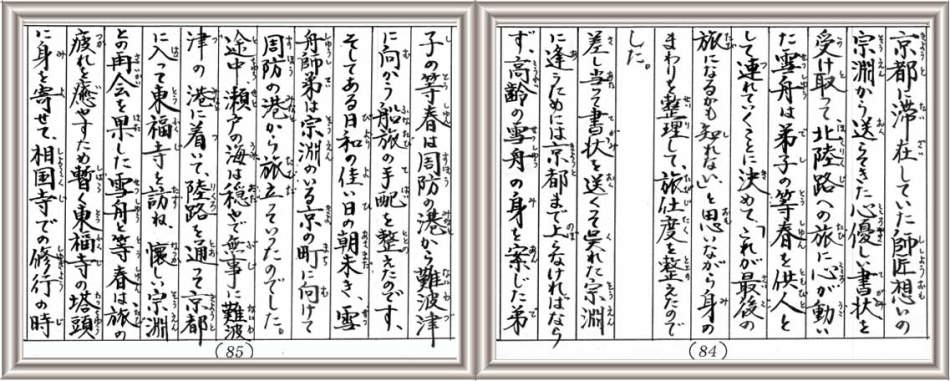 京都に滞在していた師匠想いの
宗淵から送らてきた心優しい書状を
受け取って北陸路への旅に心が動い
た雪舟は弟子の等春を供人と
して連れていくことに決めて、「これが最後の
旅になるかも知れない」と思いながら身の
まわりを整理して、旅仕度を整えたので
した。
差し当って書状を送くて呉れた宗淵
に逢うためには京都まで上らなければなら
ず、高齢の雪舟の身を案じた弟
(84)
子の等春は周防の港から難波津
に向かう船旅の手配を整えたのです、
そしてある日和の佳い日の朝未き、雪
舟師弟は宗淵のいる京の町に向けて
周防の港から旅立ていったのでした。
途中、瀬戸の海は穏やかで無事に難波
津の港に着いて、陸路を通って京都
に入って東福寺を訪ね、懐しい宗淵
との再会を果した雪舟と等春は旅の
疲れを癒やすため暫く東福寺の塔頭
に身を寄せて、相国寺での修行の時
(85)